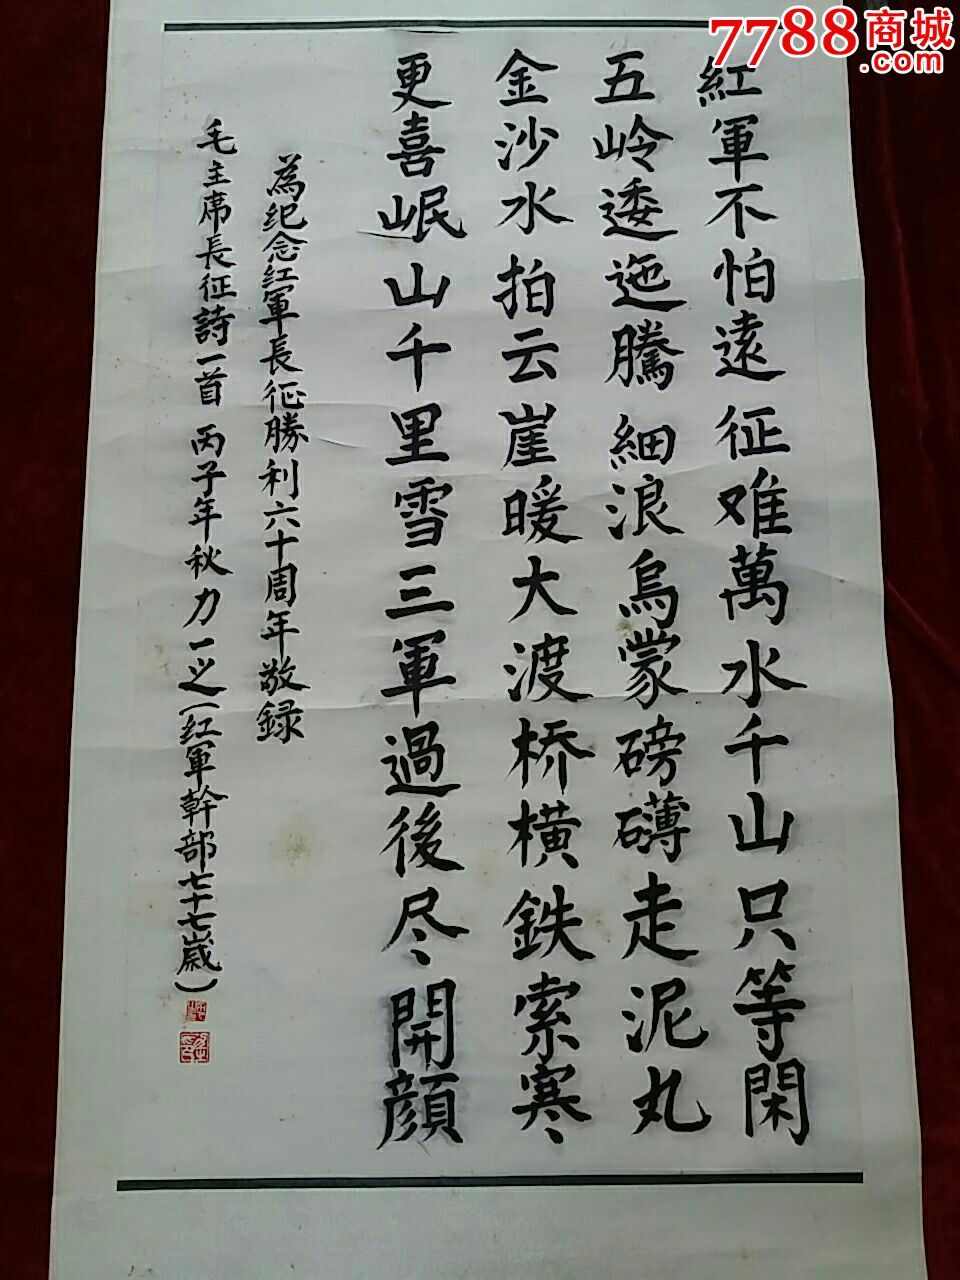 7788商城
.com
紅軍不怕遠征难萬水千山只等閑
五岭逶迤騰細浪烏蒙磅礴走泥丸
金沙水拍云崖暖大渡桥橫鉄索寒
更喜岷山千里雪三軍過後尽開顔
為纪念红軍長征勝利六十周年敬録
毛主席長征詩一首 丙子年秋力一之(红軍幹部七十七歲)